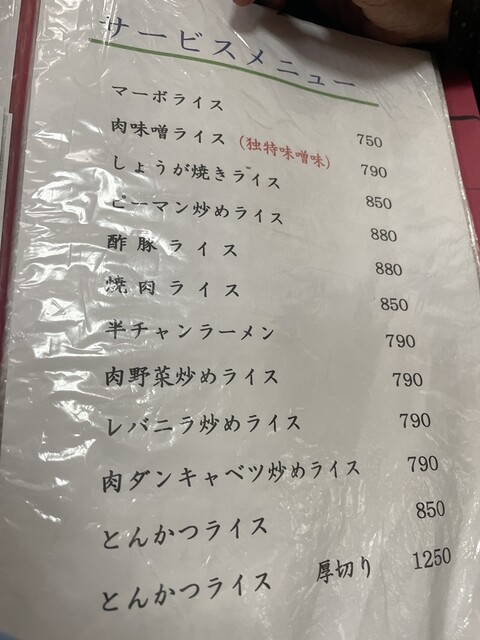 サービスメニュー
マーボライス 750
肉味噌ライス (独特味噌味) 790
しょうが焼きライス 850
ピーマン炒めライス 880
酢豚ライス 880
焼肉ライス 850
半チャンラーメン 790
肉野菜炒めライス 790
レバニラ炒めライス 790
肉ダンキャベツ炒めライス 790
とんかつライス 850
とんかつライス 厚切り 1250